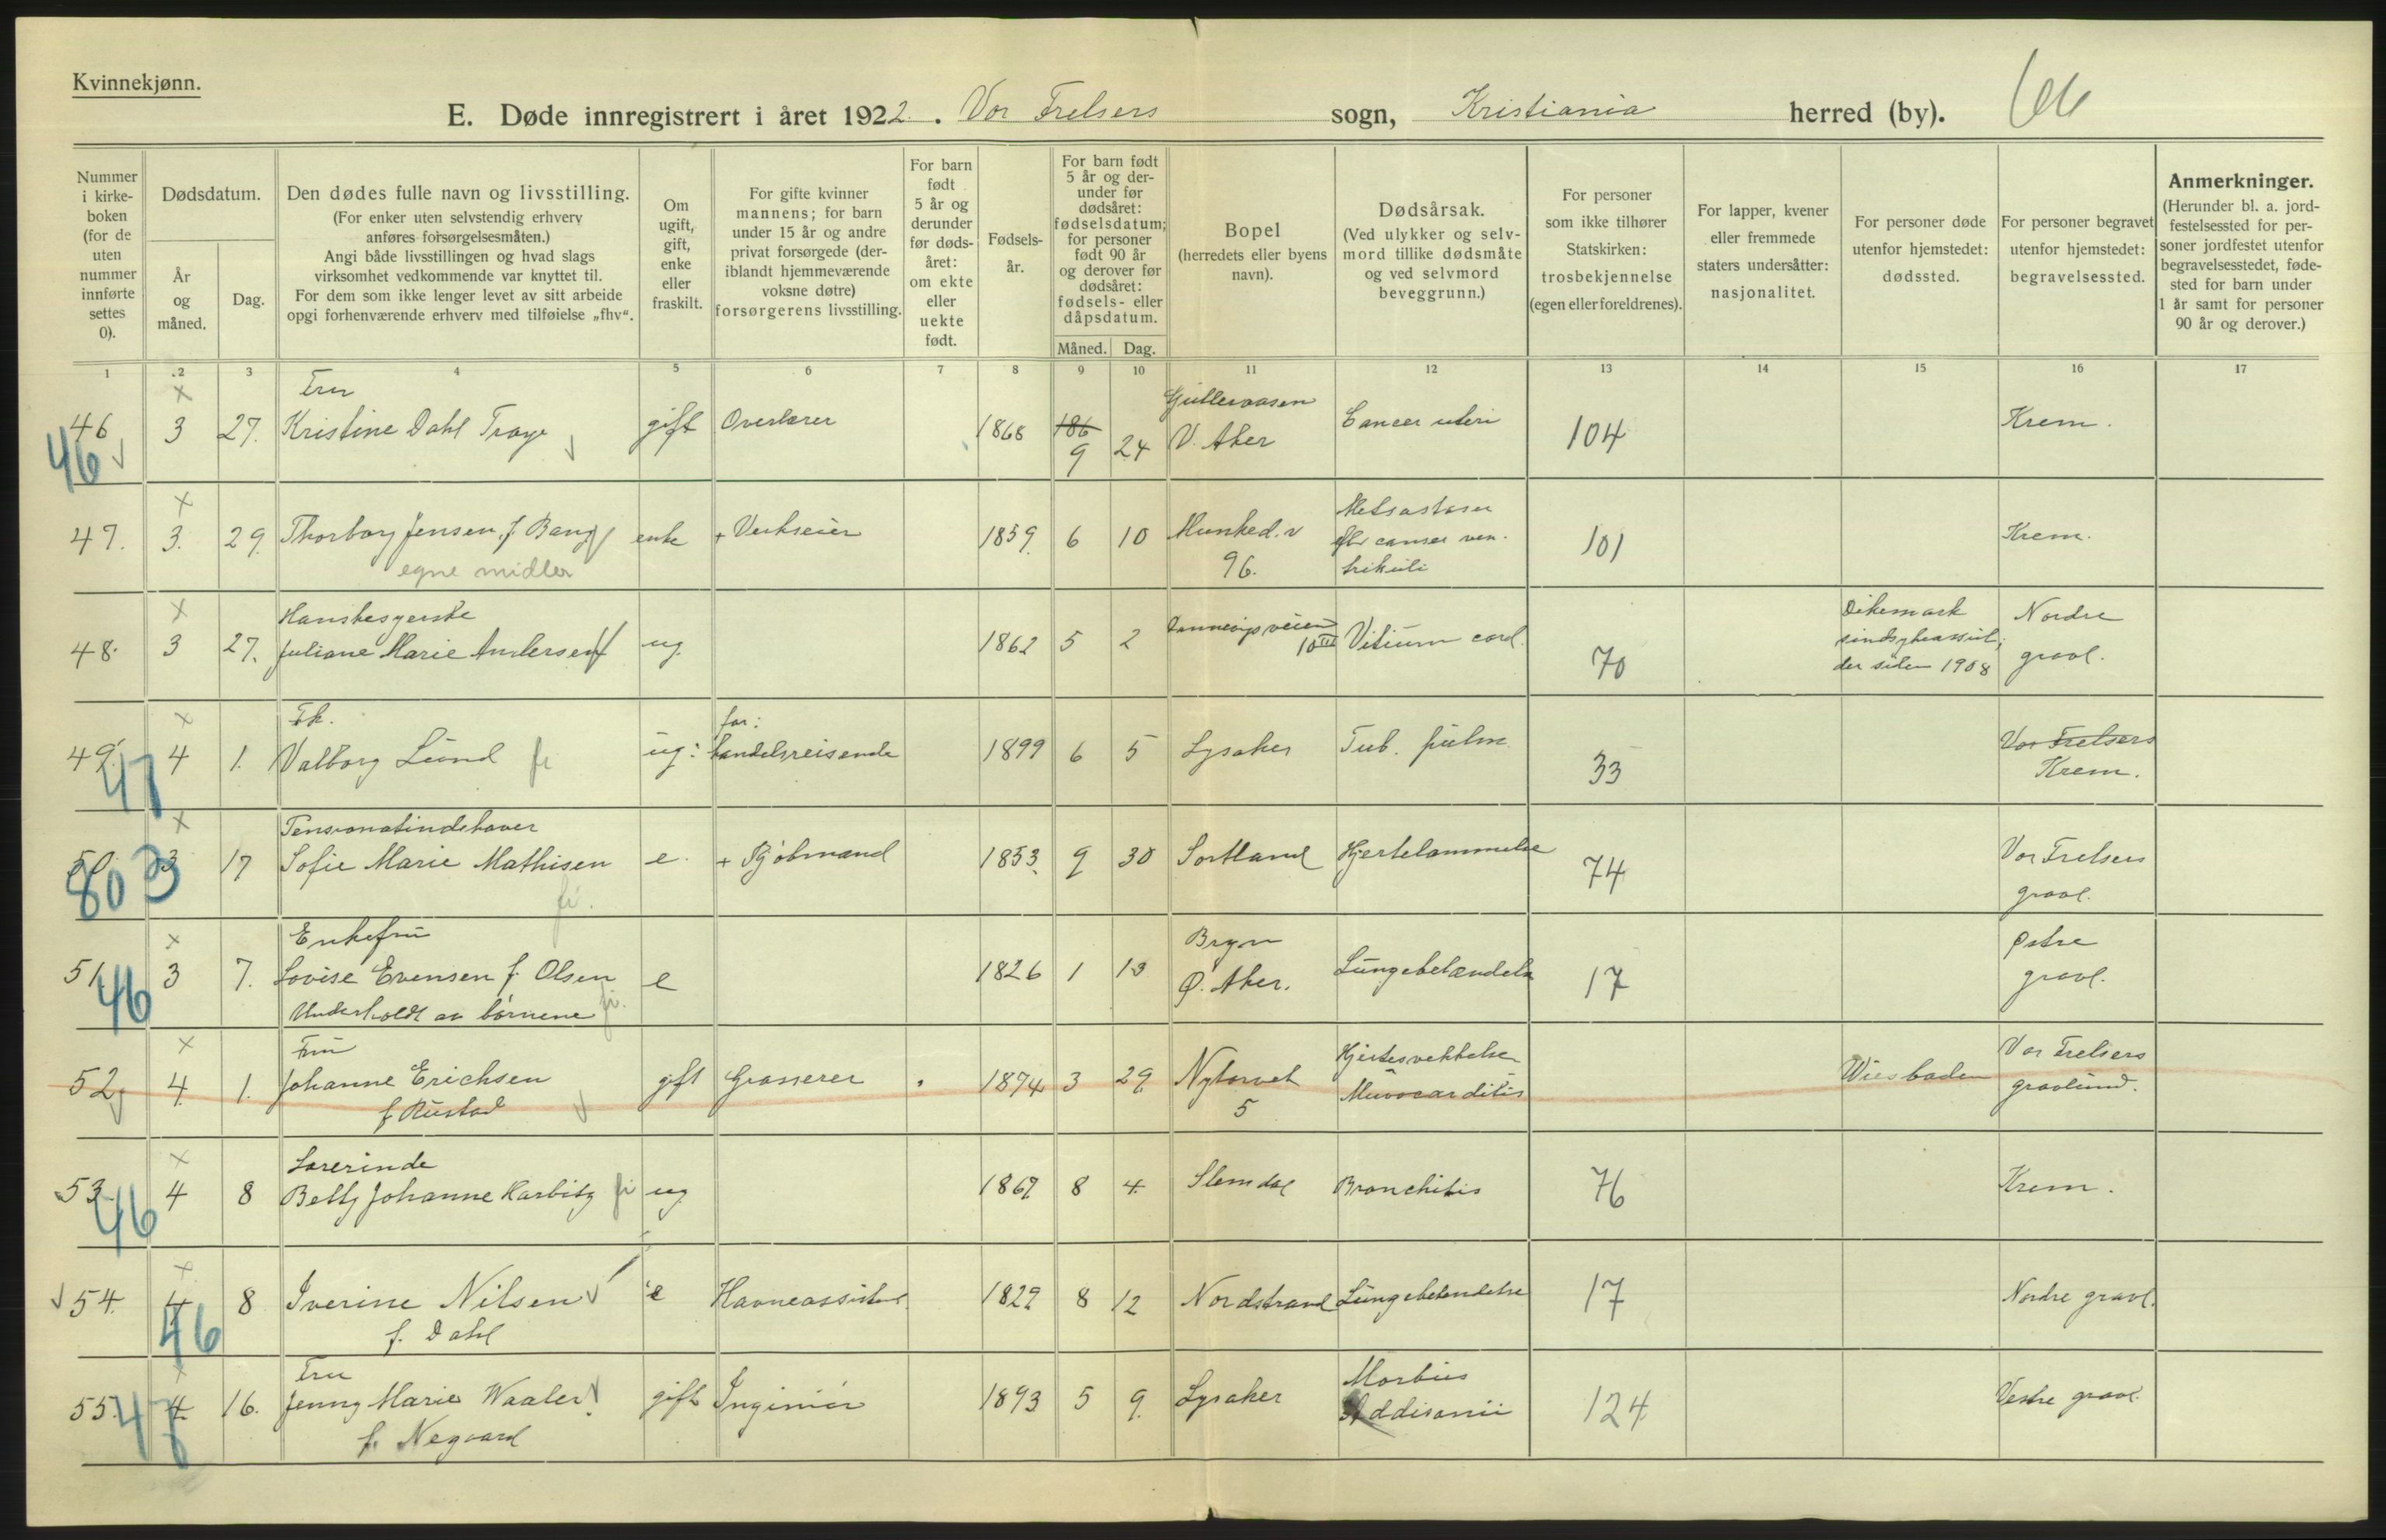 Kvinnekjønn.
E. Døde innregistrert i året 1922. Vor Frelsers sogn, Kristiania herred (by).
Nummer i kirkeboken (for de uten nummer innførte settes 0).
Dødsdatum.
År og måned.
Dag.
Den dødes fulle navn og livsstilling.
(For enker uten selvstendig erhverv
anføres forsørgelsesmåten.)
Angi både livsstillingen og hvad slags
virksomhet vedkommende var knyttet til.
For dem som ikke lenger levet av sitt arbeide
opgi forhenværende erhverv med tilføielse „fhv“.
Om ugift, gift, enke eller fraskilt.
For gifte kvinner
mannens; for barn
under 15 år og andre
privat forsørgede (der-
iblandt hjemmeværende
voksne døtre)
forsørgerens livsstilling.
For barn født 5 år og derunder før døds-året: om ekte eller uekte født.
Fødsels-år.
For barn født
5 år og der-
under før
dødsåret:
fødselsdatum;
for personer
født 90 år
og derover før
dødsåret:
fødsels- eller
dåpsdatum.
Måned. Dag.
Bopel
(herredets eller byens
navn).
Dødsårsak.
(Ved ulykker og selv-
mord tillike dødsmåte
og ved selvmord
beveggrunn.)
For personer
som ikke tilhører
Statskirken:
trosbekjennelse
(egen eller foreldrenes).
For lapper, kvener
eller fremmede
staters undersåtter:
nasjonalitet.
For personer døde
utenfor hjemstedet:
dødssted.
For personer begravet
utenfor hjemstedet:
begravelsessted.
Anmerkninger.
(Herunder bl. a. jord-
festelsessted for per-
soner jordfestet utenfor
begravelsesstedet, føde-
sted for barn under
1 år samt for personer
90 år og derover.)
1 2 3 4 5 6 7 8 9 10 11 12 13 14 15 16 17
x Fru
46 3 27. Kristine Dahl gift Overlærer 1868 186 9 24 V. Aker Cancer uteri 104 Krem.
46
x
47. 3. 29. Thorborg Jensen, f. Bang enke + Verkseier 1859 6 10 Munked.v 96. cancer ven-
trikuli 101 Krem.
egne midler
x
48. 3 27. Juliane Marie Andersen ug 1862 5 2 10 III Vitium cord. 70 Dikemark
der siden 1908 Nordre
gravl.
x Fk. far:
49. 4 1. Valborg Lund ug: handelsreisende 1899 6 5 Lysaker Tub. pulm. 33 Vor Frelsers
Krem.
47
x Pensionatindehaver
50 3 17 Sofie Marie Mathisen e. + Kjøbmand 1853 9 30 Sortland Hjertelammelse 74 Vor Frelsers
gravl.
80 3
x Enkefru
51 3 7. Lovise Evensen f. Olsen e 1826 1 13 Bryn
Ø. Aker. Lungebetændelse 17 Østre
gravl.
46 Underholdt av børnene
x Fru
52 4. 1. Johanne Erichsen gift Grosserer 1874 3 29 Nytorvet
5 Hjertesvekkelse
Wiesbaden Vor Frelsers
gravlund.
f. Rustad
x Lærerinde
53 4 8 Betty Johanne Harbitz ug 1867 8 4. Slemdal Bronchitis 76 Krem.
46
x
54. 4. 8 Iverine Nilsen e Havneassistent 1829 8 12 Nordstrand Lungebetendelse 17 Nordre gravl.
46 f. Dahl
x Fru
55. 4. 16. Jenny Marie Waaler gift Ingeniør 1893 5 9. Lysaker Morbus
Addisonii 124 Vestre gravl.
47 f. Negaard